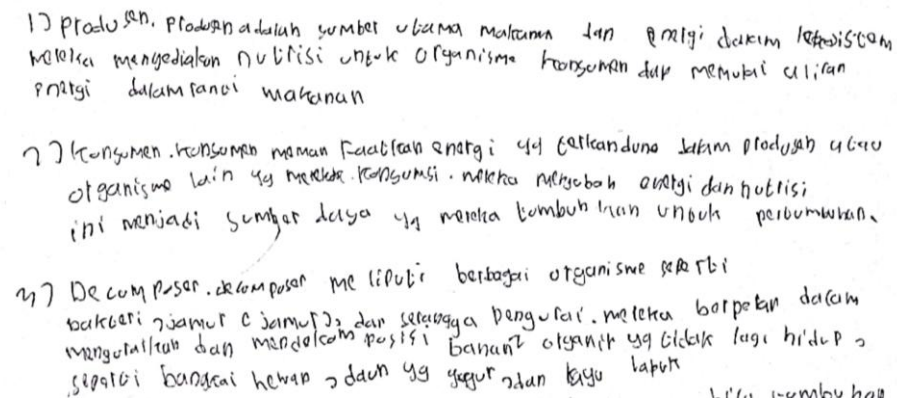 1) produsen. Produsen adalah sumber utama makanan dan energi dalam ekosistem
mereka menyediakan nutrisi untuk organisme konsumen dan memulai aliran
energi dalam rantai makanan
2) Konsumen. konsumen memanfaatkan energi yg terkandung dalam produsen atau
organisme lain yg mereka konsumsi. mereka mengubah energi dan nutrisi
ini menjadi sumber daya yg mereka butuhkan untuk pertumbuhan.
3) Decomposer. decomposer meliputi berbagai organisme seperti
bakteri, jamur (jamur), dan serangga pengurai. mereka berperan dalam
menguraikan dan mendekomposisi bahan² organik yg tidak lagi hidup,
seperti bangkai hewan, daun yg gugur, dan kayu lapuk